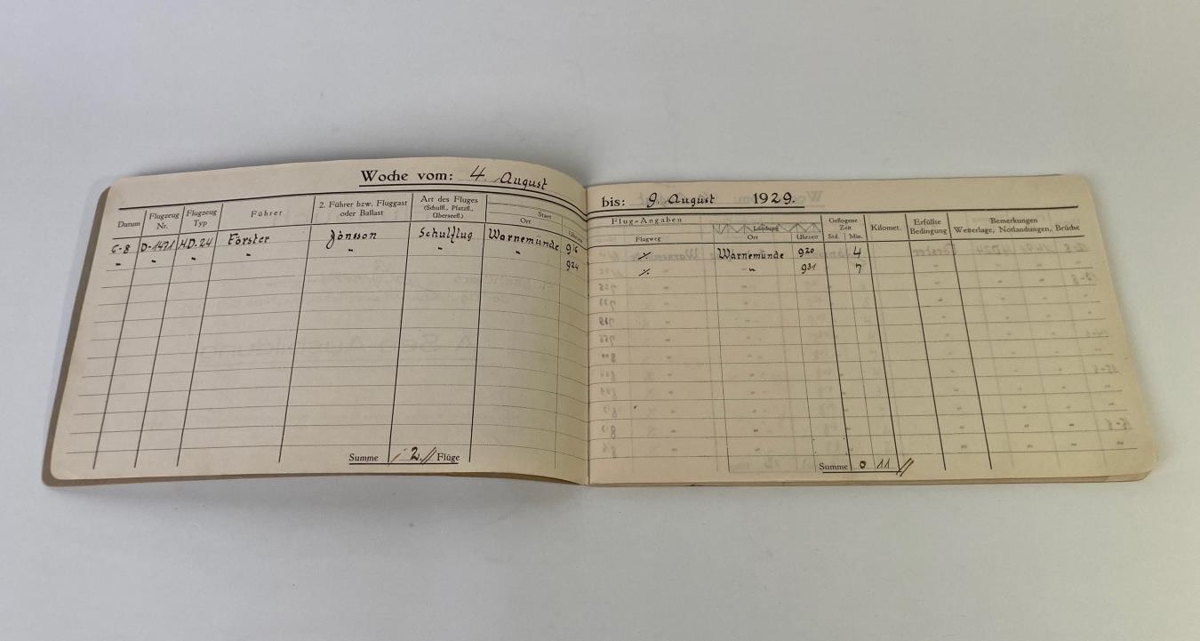 Woche vom: 4. August
bis: 9. August 1929.
Datum Flugzeug Nr. Flugzeug Typ Führer 2. Führer bzw. Fluggast oder Ballast Art des Fluges (Schulfl., Platzfl., Überseefl.) Start Ort Uhrzeit
Flug-Angaben Flugweg Landung Ort Uhrzeit Geflogene Zeit Std. Min. Kilomet. Erfüllte Bedingung Bemerkungen Wetterlage, Notlandungen, Brüche
6-8 D-1421 HD.24 Förster Jónsson Schulflug Warnemünde 9 16 Warnemünde 9 20 4
" " " " " " " 9 24 " 9 31 7
Summe 2. Flüge
Summe 0 11